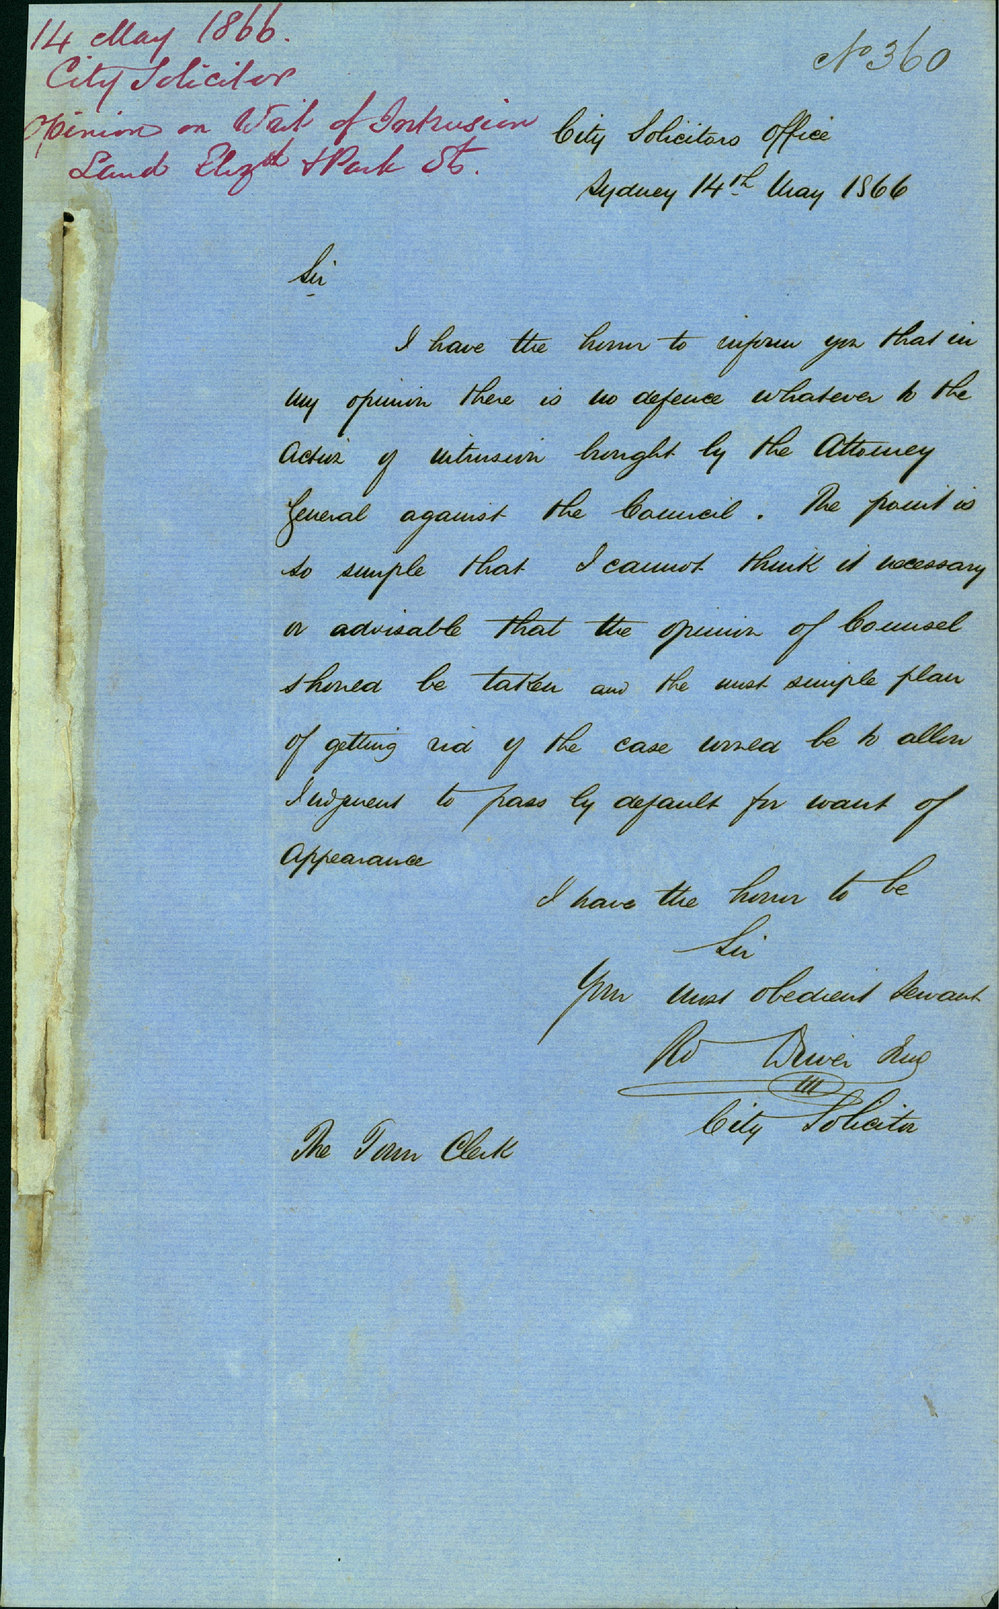 14 May 1866.
City Solicitor
Opinion on Writ of Intrusion
Land Elizth & Park Sts.
No 360
City Solicitors Office
Sydney 14th May 1866
Sir
I have the honor to inform you that in
my opinion there is no defence whatever to the
Action of intrusion brought by the Attorney
General against the Council. The point is
so simple that I cannot think it necessary
or advisable that the opinion of Counsel
should be taken and the most simple plan
of getting rid of the case would be to allow
Judgment to pass by default for want of
Appearance
I have the honor to be
Sir
Your most obedient Servant
Rd Driver Jun
City Solicitor
The Town Clerk